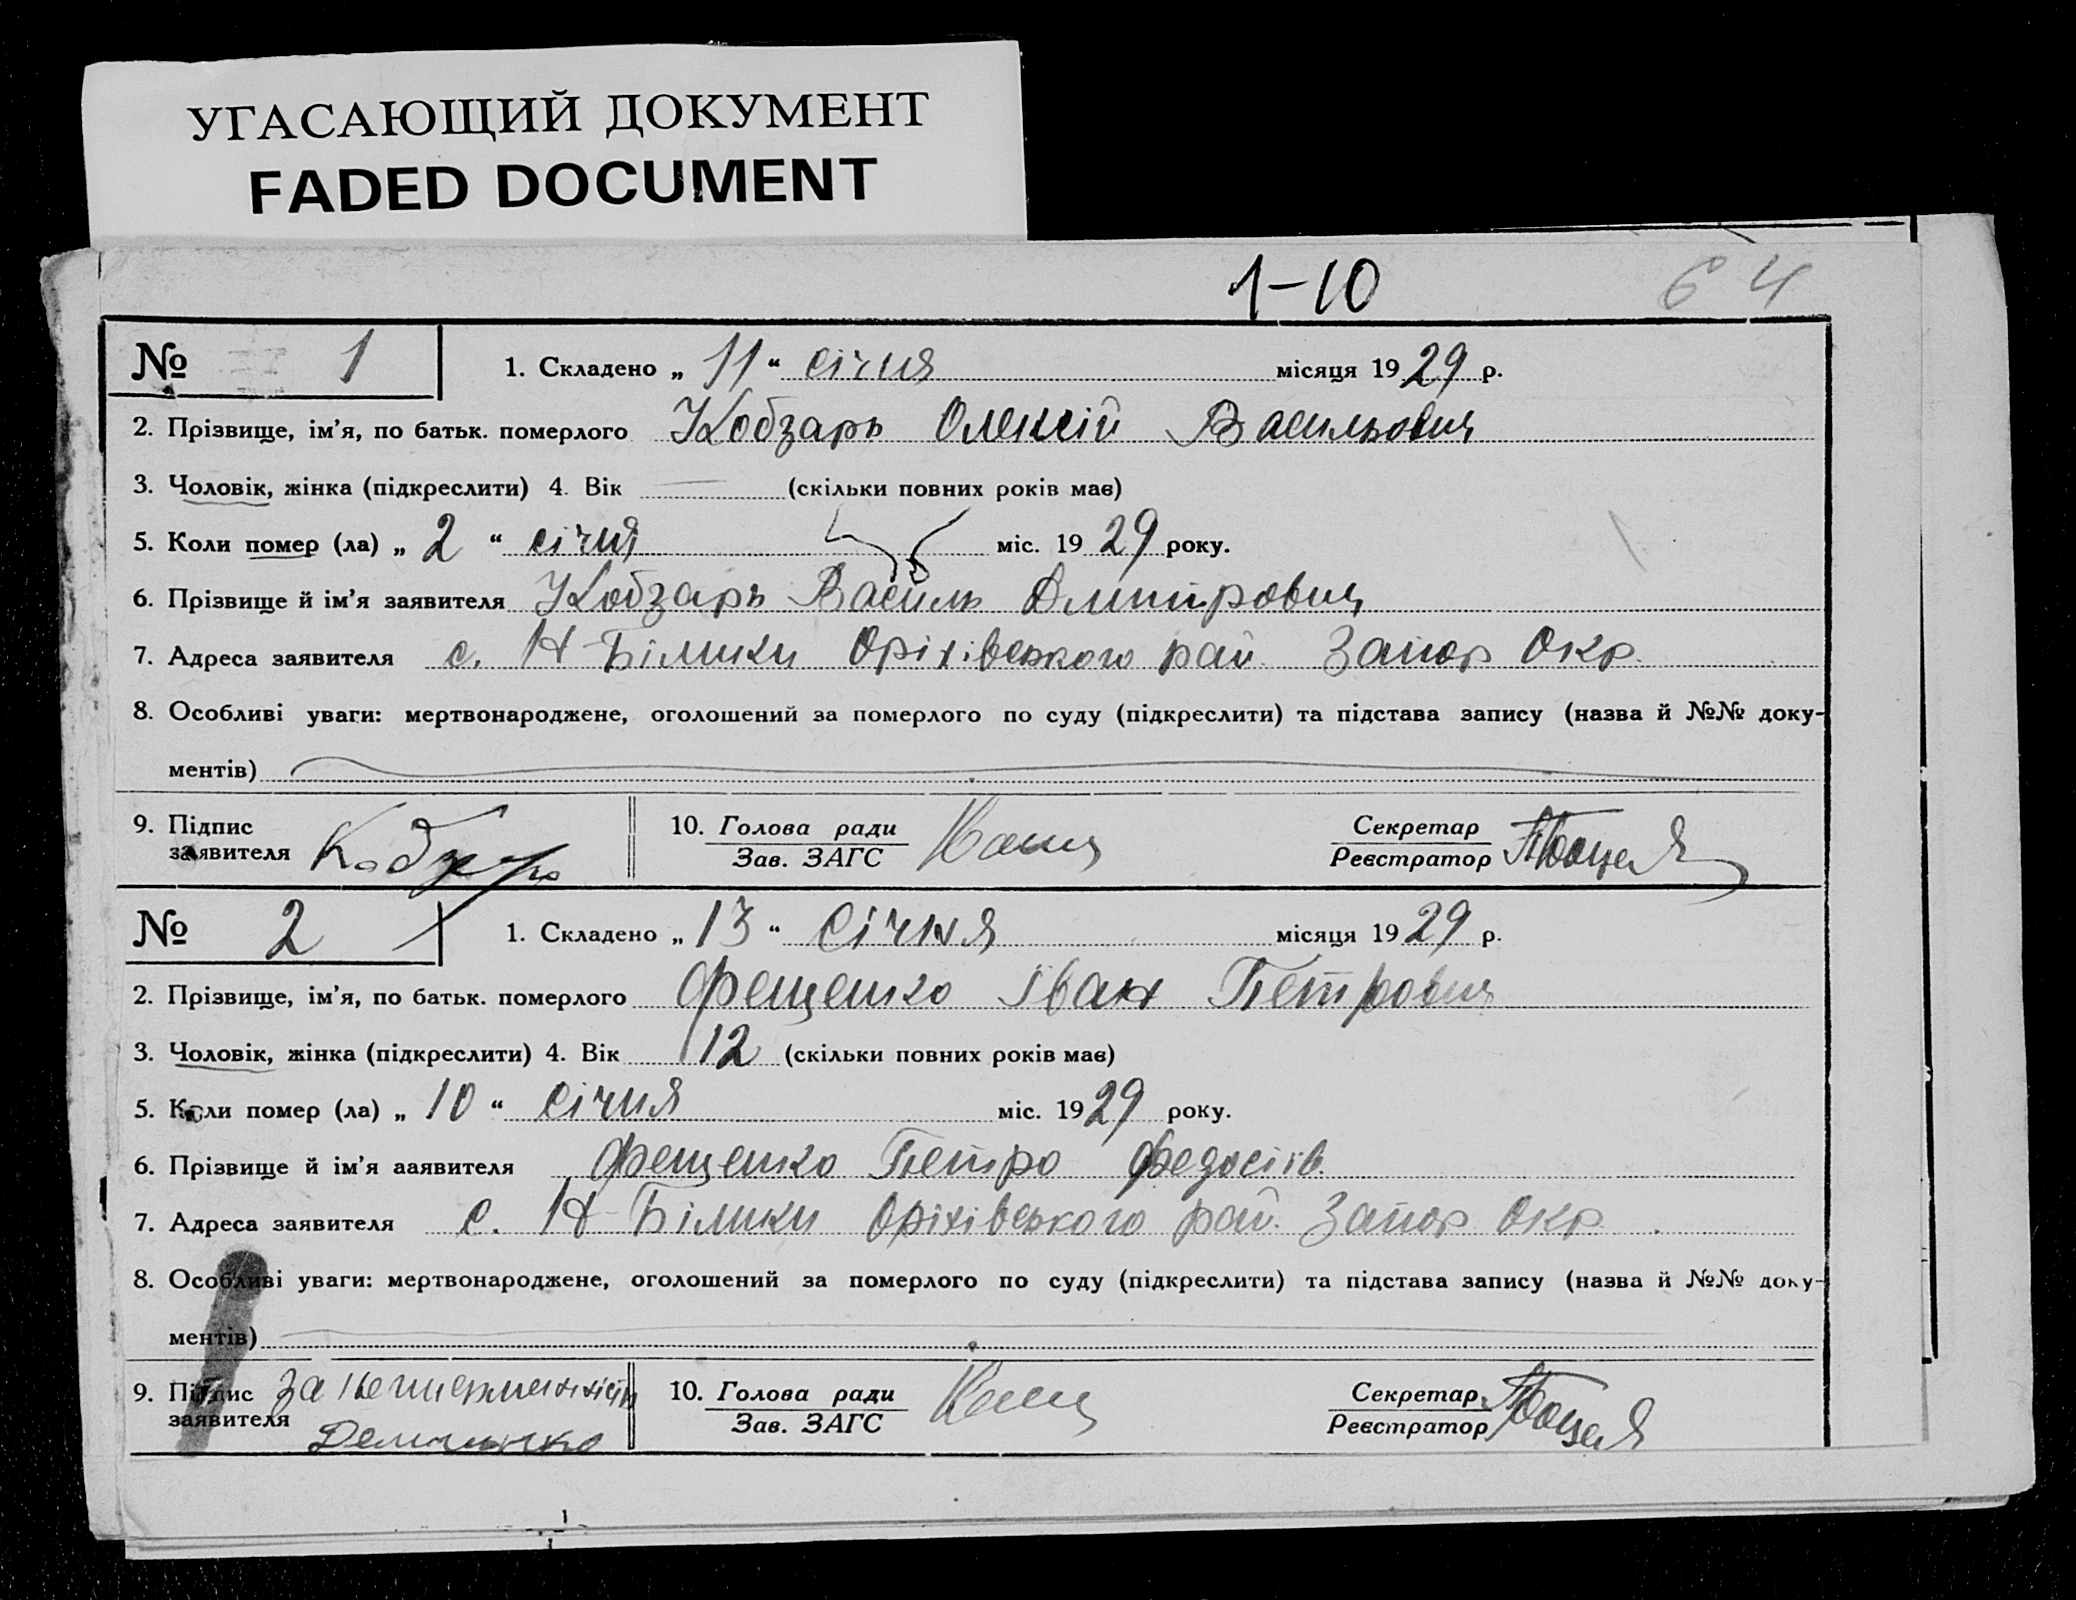 УГАСАЮЩИЙ ДОКУМЕНТ
FADED DOCUMENT
1-10 64
№ 1 1. Складено „ 11 “ січня місяця 1929 р.
2. Прізвище, ім’я, по батьк. померлого Кобзарь Олексій Васильович
3. Чоловік, жінка (підкреслити) 4. Вік — (скільки повних років мав)
5. Коли помер (ла) „ 2 “ січня міс. 1929 року.
6. Прізвище й ім’я заявителя Кобзарь Василь Дмитрович
7. Адреса заявителя с. Н-Білики Оріхівського рай. Запор Окр.
8. Особливі уваги: мертвонароджене, оголошений за померлого по суду (підкреслити) та підстава запису (назва й №№ доку-
ментів)
9. Підпис заявителя Кобзарь 10. Голова ради Зав. ЗАГС Секретар Реєстратор
№ 2 1. Складено „ 13 “ Січня місяця 1929 р.
2. Прізвище, ім’я, по батьк. померлого Фещенко Іван Петрович
3. Чоловік, жінка (підкреслити) 4. Вік 12 (скільки повних років мав)
5. Коли помер (ла) „ 10 “ січня міс. 1929 року.
6. Прізвище й ім’я ааявителя Фещенко Петро Федосіїв.
7. Адреса заявителя с. Н-Білики Оріхівського рай. Запор Окр.
8. Особливі уваги: мертвонароджене, оголошений за померлого по суду (підкреслити) та підстава запису (назва й №№ доку-
ментів)
9. Підпис заявителя За 10. Голова ради Зав. ЗАГС Секретар Реєстратор